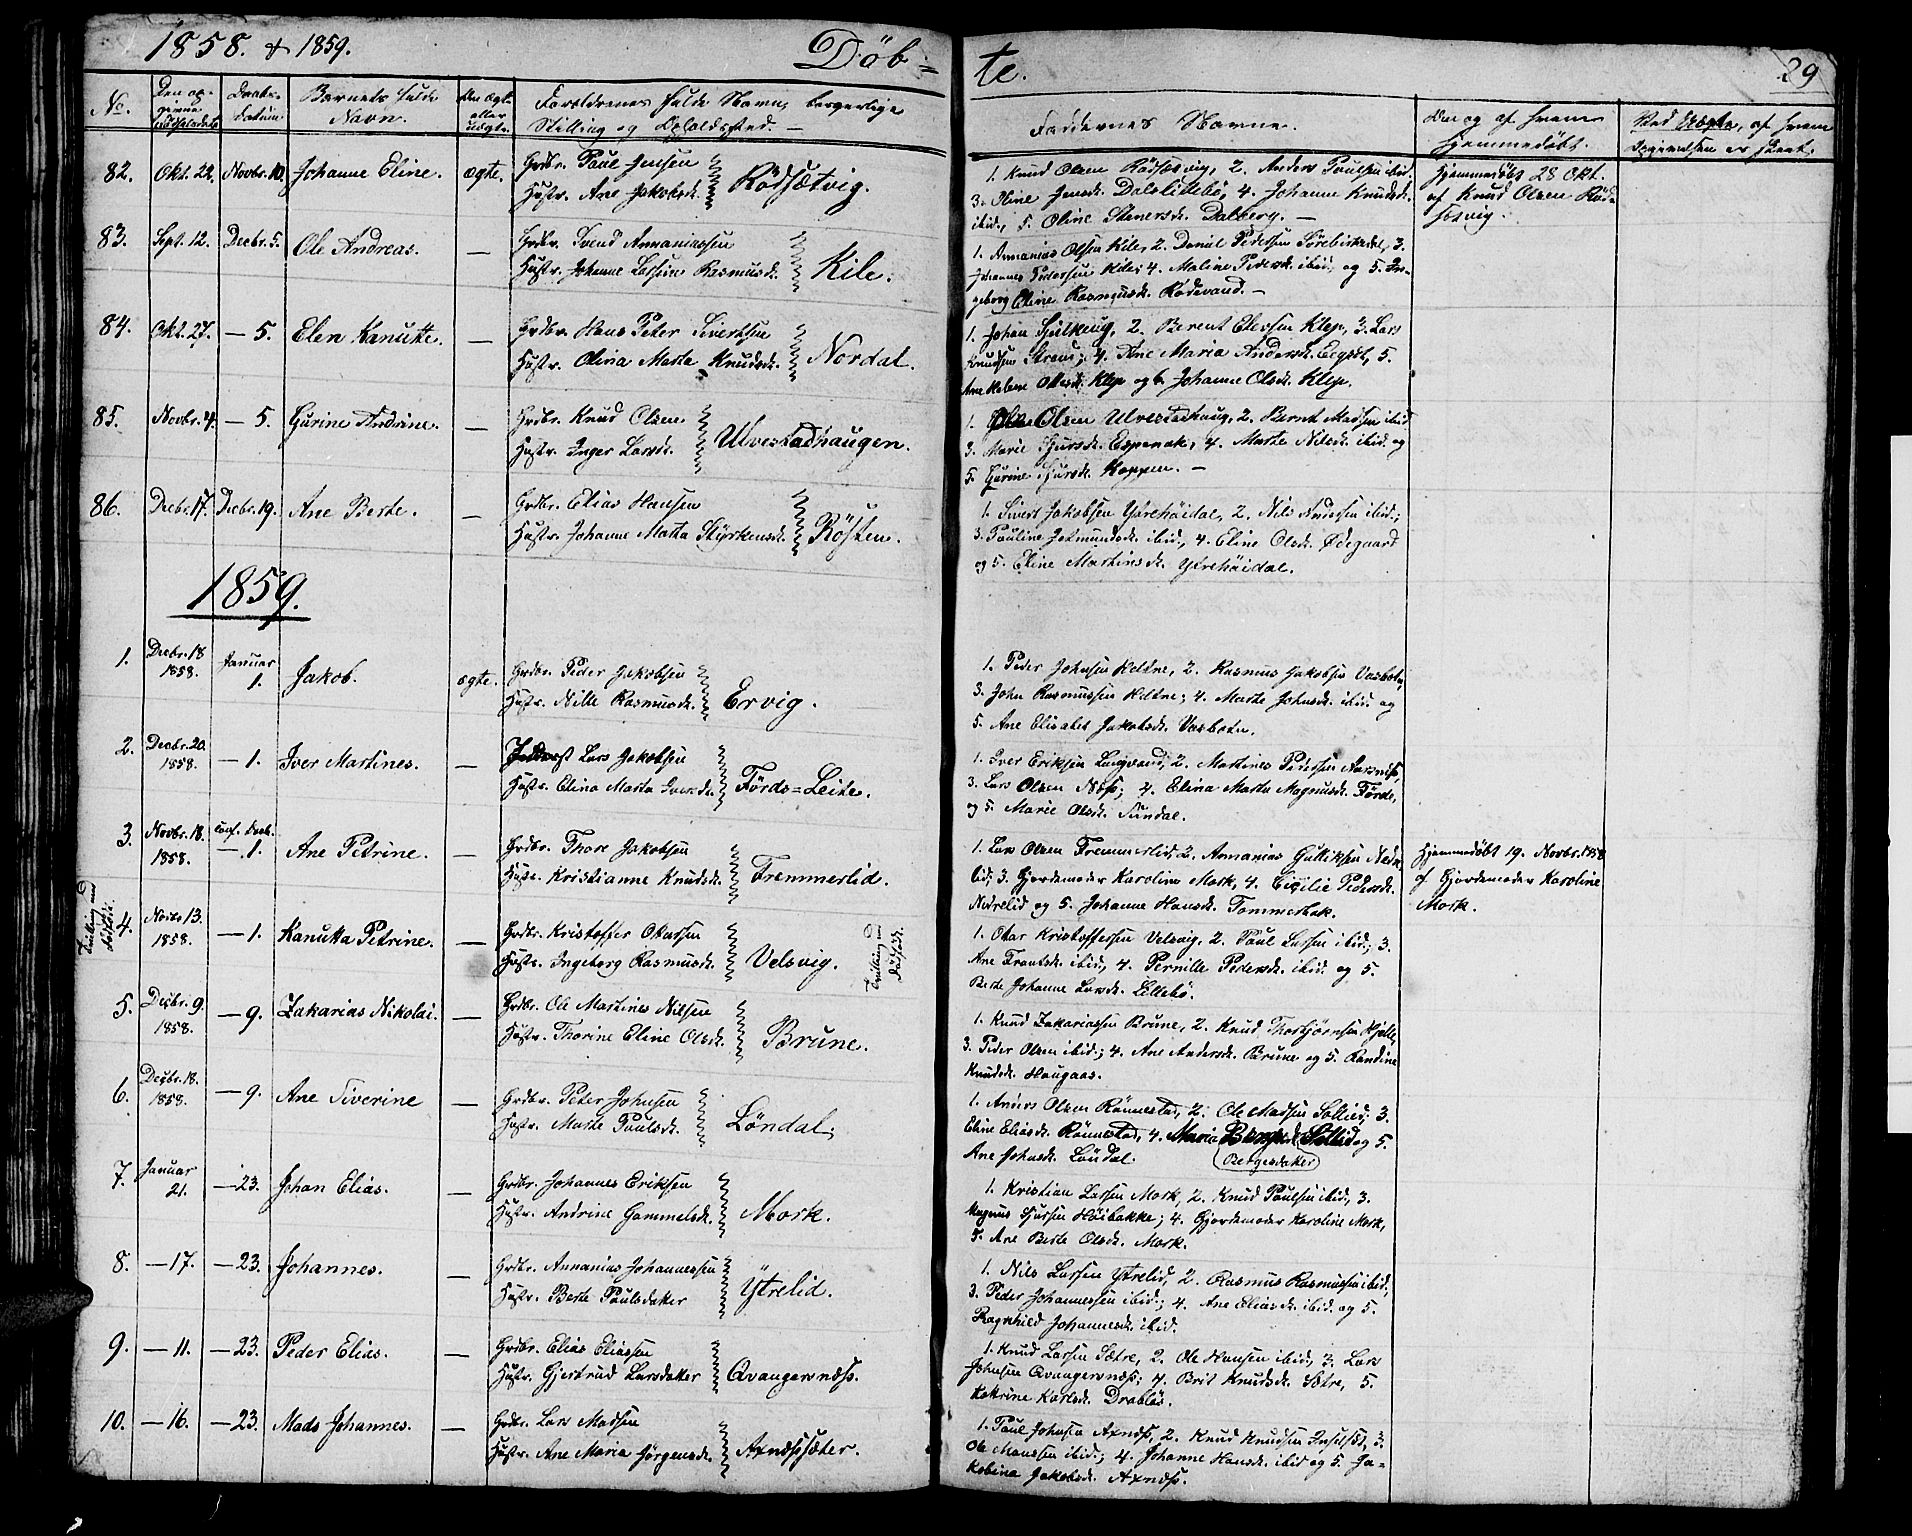 1858. & 1859.
Döb=
te.
29
No.
Daabs-
datum
Barnets fulde
Navn.
Den ægte
eller
uægte.
Forældrenes fulde Navn, borgerlige
Stilling og Opholdssted. —
Faddernes Navne.
Om og af hvem
hjemmedøbt.
82. Okt. 22. Novbr. 10. Johanne Eline. ægte. Grdbr. Paul Jensen
Hustr. Ane Jakobsd. Rödsætvig.
1. Knud Olsen Rödsetvig, 2. Anders Paulsen ibid.
3. Oline Jensd. Dalslittebö, 4. Johanne Knudsd.
ibid., 5. Oline Stenersd. Dalberg. —
Hjemmedöbt 28 Okt.
af Knud Olsen Röd-
setvig.
83. Sept. 12. Decbr. 5. Ole Andreas. — Grdbr. Svend Annaniassen
Hustr. Johanne Larsine Rasmusd. Kile.
1. Annanias Olsen Kile, 2. Daniel Pedersen Sørebirkedal, 3.
Johannes Pedersen Kile; 4. Maline Pedersd. ibid., og 5. In-
geborg Oline Rasmusd. Rödevand. —
84. Okt. 27. — 5. Elen Kanutte. — Grdbr. Hans Peter Sivertsen
Hustr. Olina Marte Knudsd. Nordal.
1. Johan 2. Berent Elevsen Klep, 3. Lars
Knudsen Strand; 4. Ane Maria Andersd. 5.
Ane Helene Klep og 6. Johanne Olsd. Klep.
85. Novbr. 4. — 5. Gurine Andrine. — Grdbr. Knud Olsen
Hustr. Inger Larsd. Ulvestadhaugen.
1. Ole Olsen Ulvestadhaug, 2. Bernt Madsen ibid
3. Marie Sjursd. Espenak, 4. Marte Nilsd. ibid. og
5. Gurine Sjursd. Koppen. —
86. Decbr. 17. Decbr. 19. Ane Berte. — Grdbr. Elias Hansen
Hustr. Johanne Marta Styrkersd. Rösten.
1. Sivert Jakobsen Ytrehöidal, 2. Nils Andersen ibid.;
3. Pauline Jetmundsd. ibid., 4. Eline Olsd. Ødegaard
og 5. Eline Martinsd. Ytrehöidal.
1859.
1. Decbr. 18 1858. Januar 1. Jakob. ægte. Grdbr. Peder Jakobsen
Hustr. Nille Rasmusd. Ervig.
1. Peder Johnsen Heltne, 2. Rasmus Jakobsen Vasbotn,
3. John Rasmussen Heltne; 4. Marte Johnsd. ibid. og
5. Ane Elisabet Jakobsd. Vasbotn.
2. Decbr. 20. 1858. — 1. Iver Martines. — Lars Jakobsen
Hustr. Elina Marta Iversd. Förds=Leite.
1. Iver Eriksen Langvand, 2. Martines Pedersen Aarsnes,
3. Lars Olsen Næss; 4. Elina Marte Magnusd. Förde,
og 5. Marie Olsd. Sundal.
3. Novbr. 18. 1858. — 1. Ane Petrine. — Grdbr. Thore Jakobsen
Hustr. Kristianne Knudsd. Fremmerlid.
1. Lars Olsen Fremmerlid, 2. Annanias Gulliksen Nedre-
lid; 3. Gjordemoder Karoline Mork, 4. Cicilie Pedersd.
Nedrelid og 5. Johanne Hansd. Tommerbak.
Hjemmedöbt 19. Novbr. 1858
af Gjordemoder Karoline
Mork.
4. Novbr. 13. 1858. — 1. Kanutta Petrine. — Grdbr. Kristoffer Otarsen
Hustr. Ingeborg Rasmusd. Velsvig.
1. Otar Kristoffersen Velsvig, 2. Paul Larsen ibid.; 3.
Ane Frantsd. ibid., 4. Pernille Pedersd. ibid. og 5.
Berte Johanne Larsd. Lillebö.
5. Decbr. 9. 1858. — 9. Zakarias Nikolai. — Grdbr. Ole Martines Nilsen
Hustr. Thorine Eline Olsd. Brune.
1. Knud Zakariassen Brune, 2. Knud Thorbjörnsen Hjelle,
3. Peder Olsen ibid.; 4. Ane Andersd. Brune og 5. Randine
Knudsd. Haugaas.
6. Decbr. 18. 1858. — 9. Ane Siverine — Grdbr. Peter Johnsen
Hustr. Marte Paulsd. Löndal.
1. Anders Olsen Rönnestad, 2. Ole Madsen Sollied; 3.
Eline Eliasd. Rönnestad, 4. Maria Sollid og 5.
Ane Johnsd. Löndal.
7. Januar 21. — 23. Johan Elias. — Grdbr. Johannes Eriksen
Hustr. Andrine Gammelsd. Mork.
1. Kristian Larsen Mork, 2. Knud Paulsen ibid., 3.
Magnus Sjursen Höibakke; 4. Gjordemoder Karoline Mork,
5. Ane Berte Olsd. Mork.
8. — 17. — 23. Johannes. — Grdbr. Annanias Johannessen
Hustr. Berte Paulsdatter Ytrelid.
1. Nils Larsen Ytrelid, 2. Rasmus Rasmussen ibid.
3. Peder Johannessen ibid.; 4. Ane Eliasd. ibid. og 5.
Ragnhild Johannesd. ibid.
9. — 11. — 23. Peder Elias. — Grdbr. Elias Eliassen
Hustr. Gjertrud Larsdatter Qvangersnæss.
1. Knud Larsen Sætre, 2. Ole Hansen ibid., 3. Lars
Johnsen Qvangersnæss; 4. Brit Knudsd. Sætre, 5.
Katrine Karlsd. Drablös.
10. — 16. — 23. Mads Johannes. — Grdbr. Lars Madsen
Hustr. Ane Maria Jörgensd. Axnæssæter.
1. Paul Johnsen Axnæss, 2. Knud Knudsen 3.
Ole Monssen ibid.; 4. Johanne Hansd. ibid og 5. Ja-
kobina Jakobsd. Axnæss.